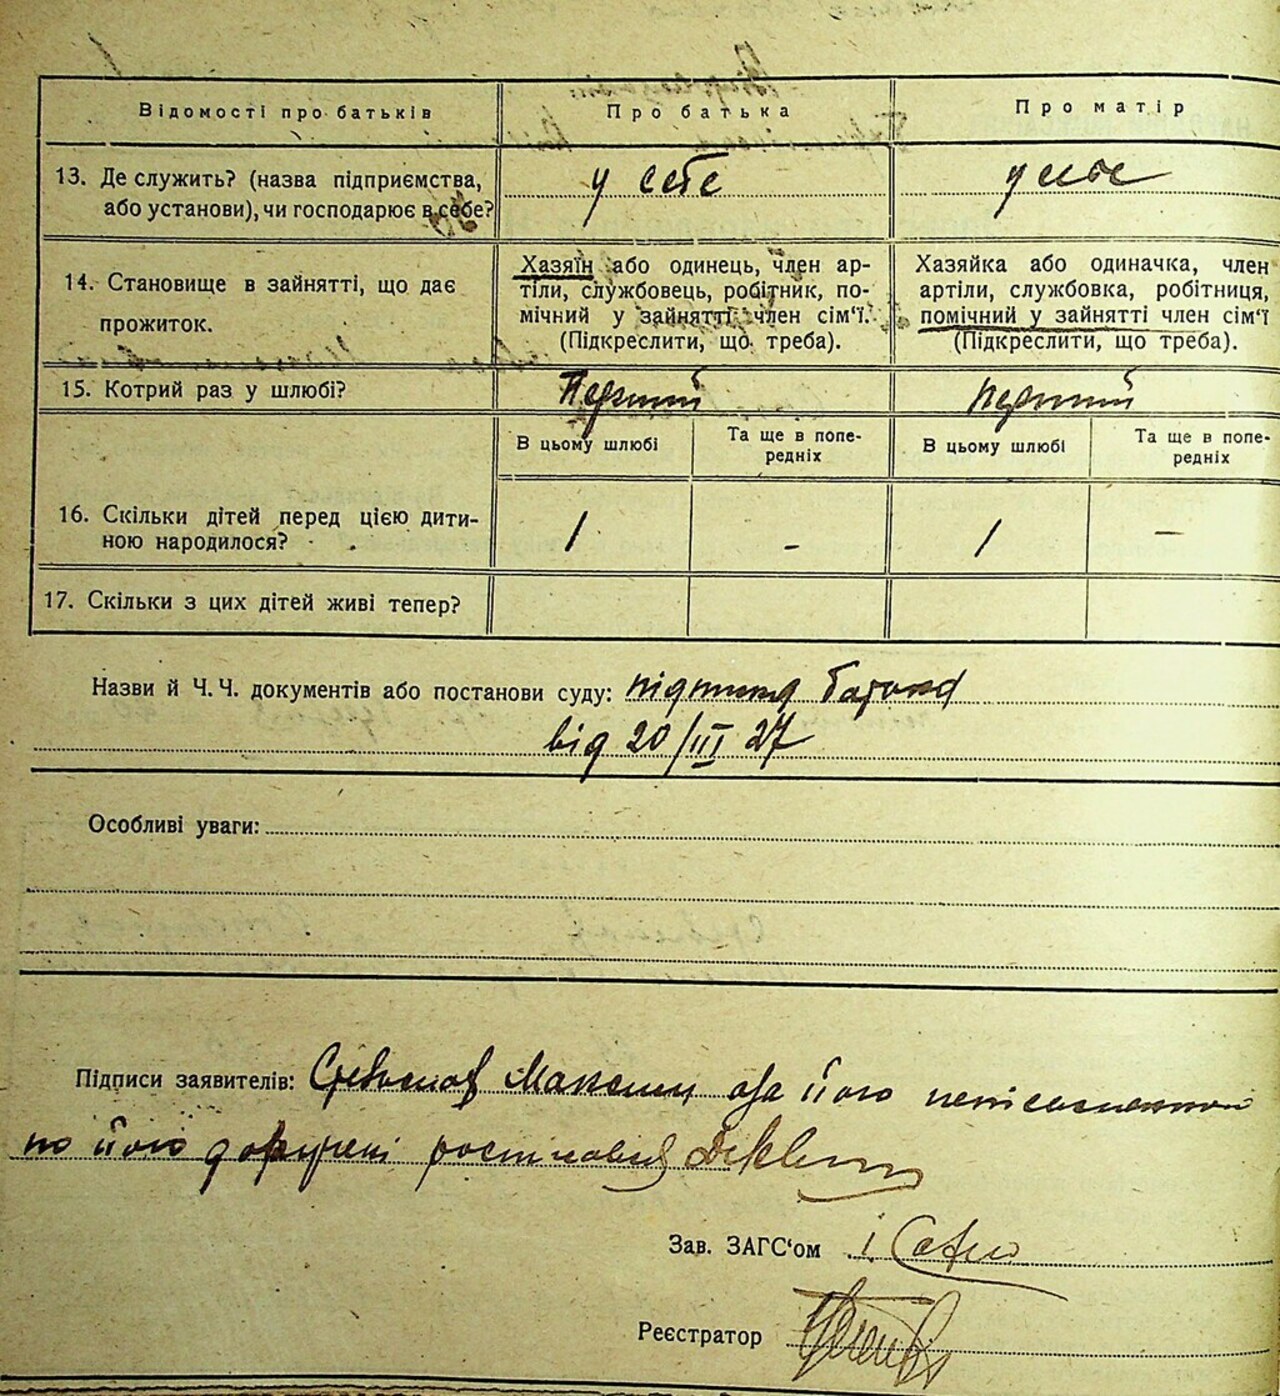 Відомості про батьків
Про батька
Про матір
13. Де служить? (назва підприємства,
або установи), чи господарює в себе?
у себе
у себе
14. Становище в зайнятті, що дає
прожиток.
Хазяїн або одинець, член ар-
тіли, службовець, робітник, по-
мічний у зайнятті член сім'ї.
(Підкреслити, що треба).
Хазяйка або одиначка, член
артіли, службовка, робітниця,
помічний у зайнятті член сім'ї
(Підкреслити, що треба).
15. Котрий раз у шлюбі?
Перший
перший
В цьому шлюбі
Та ще в попе-
редніх
В цьому шлюбі
Та ще в попе-
редніх
16. Скільки дітей перед цією дити-
ною народилося?
1
-
1
-
17. Скільки з цих дітей живі тепер?
Назви й Ч. Ч. документів або постанови суду:
від 20/III 27
Особливі уваги:
Підписи заявителів: Максим а за його
по його доручені росписався
Зав. ЗАГС'ом
Реєстратор